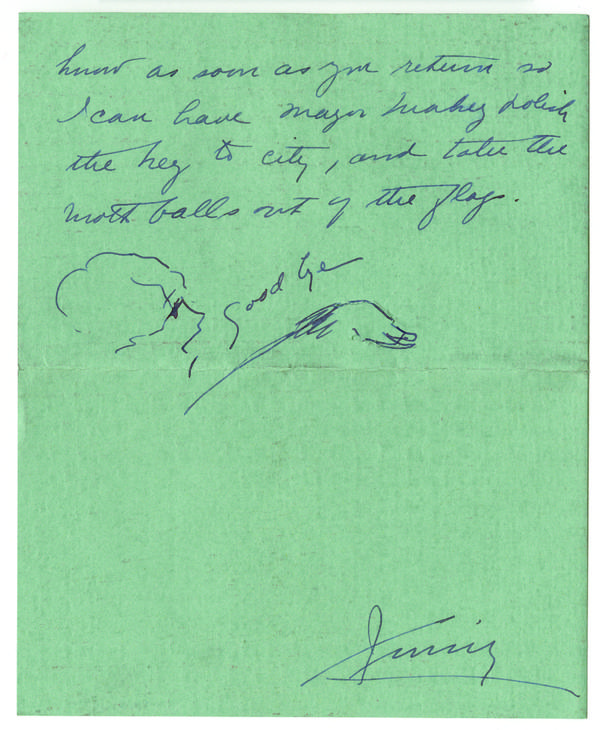 know as soon as you return so
I can have mayor polish
the key to city, and take the
moth balls out of the flags.
Good bye